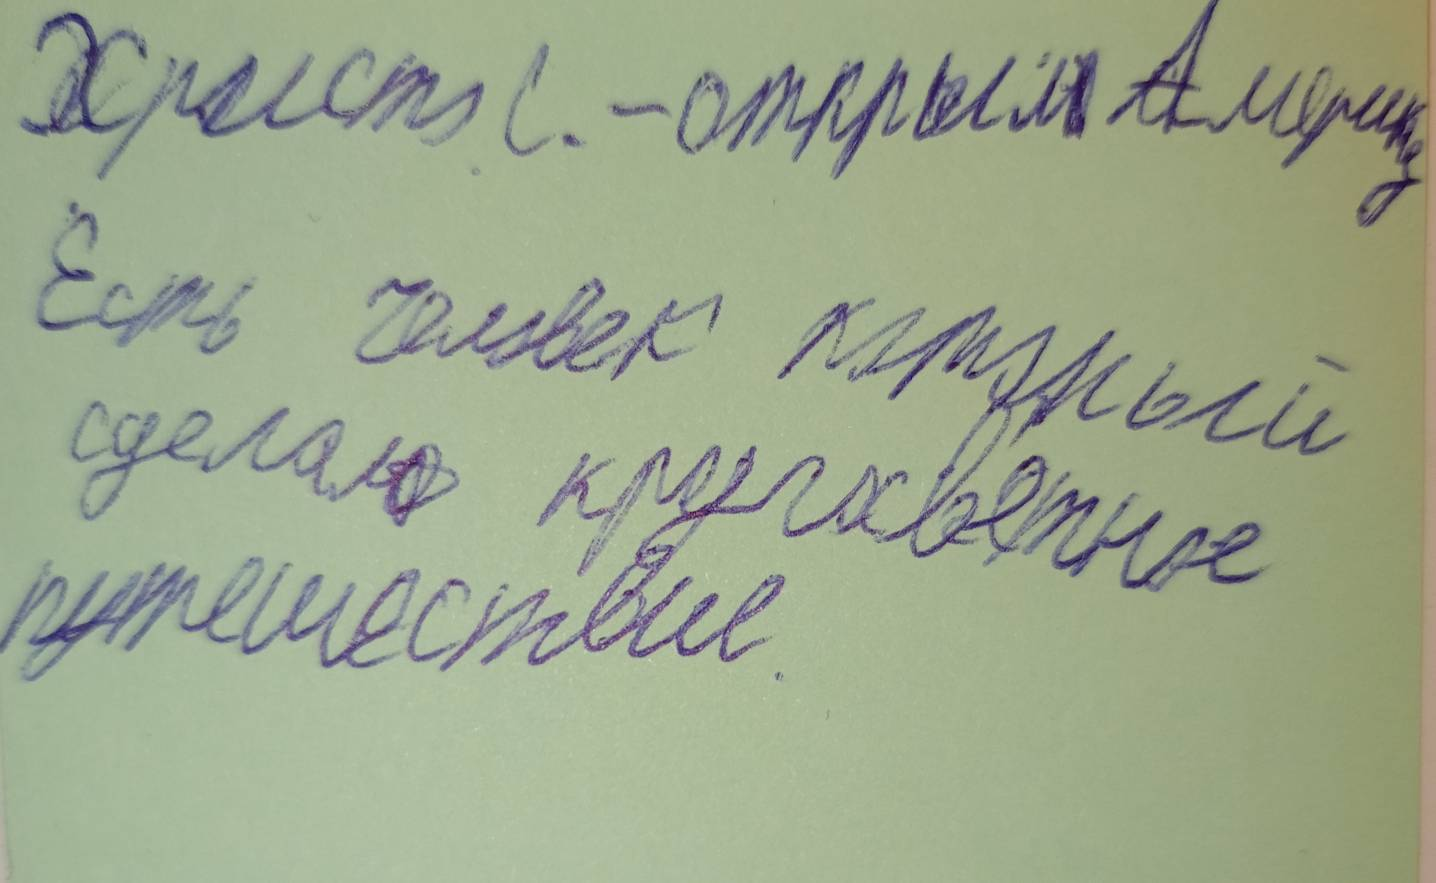 Христ. С. - открыл Америку
Есть человек который
сделал кругосветное
путешествие.